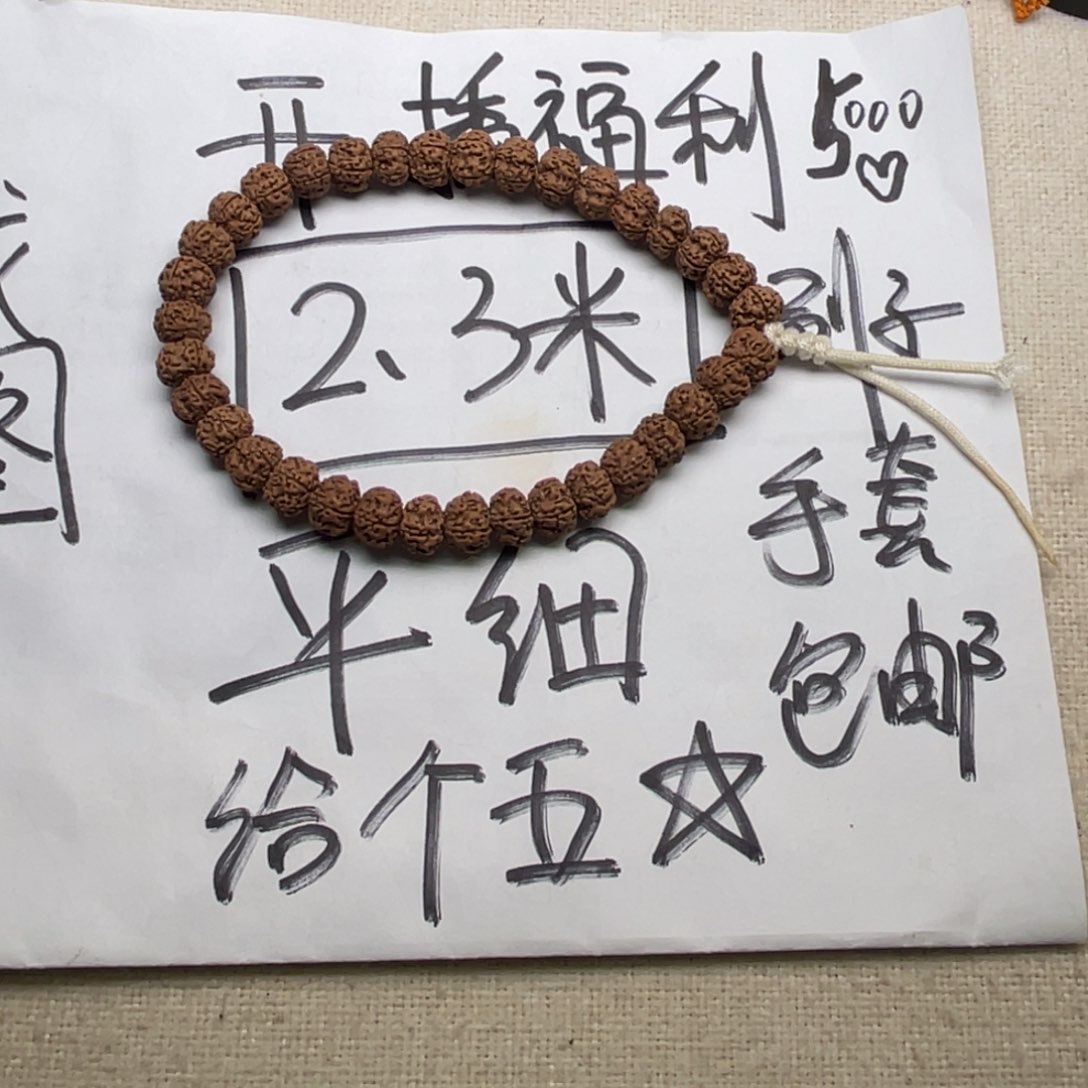 开播福利 5000♡
2、3米
刷子
手套
包邮
平细
给个五☆